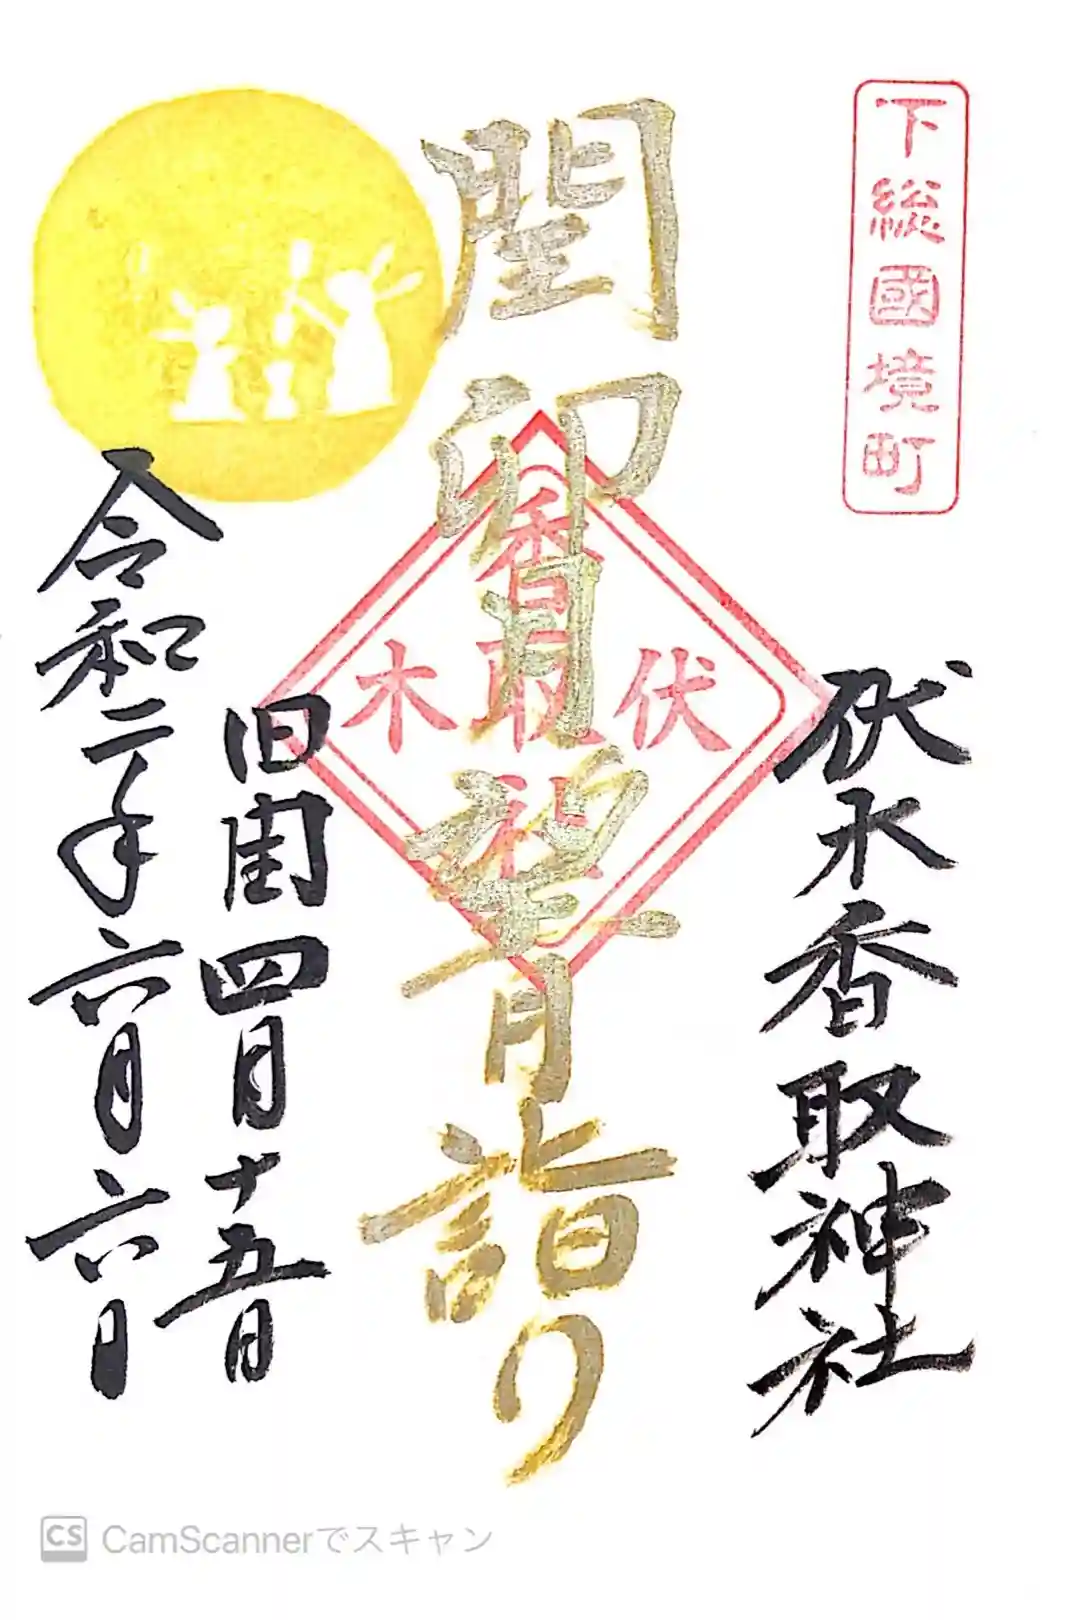 下総國境町
伏木香取神社
閏卯月望月詣り
香取神社
伏木
旧閏四月十五日
令和二年六月六日
CS CamScannerでスキャン